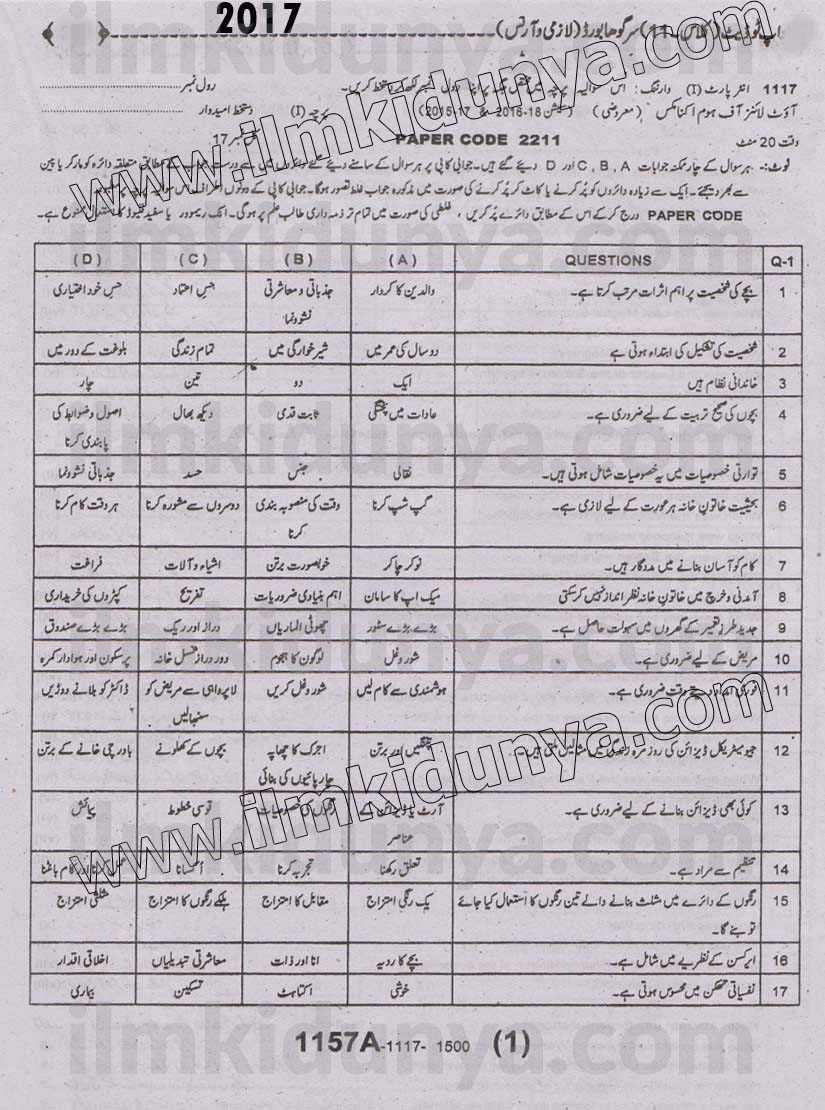 2017
اپ ٹو ڈیٹ (کلاس - 11) سرگودھا بورڈ (لازمی و آرٹس)
1117 انٹر پارٹ (I) وارننگ: اس سوالیہ پرچہ میں مختص جگہ پر اپنا رول نمبر لکھ کر دستخط کریں۔ رول نمبر
آؤٹ لائنز آف ہوم اکنامکس (معروضی) (سیشن 18-2016 & 17-2015) پرچہ (I) دستخط امیدوار
وقت 20 منٹ PAPER CODE 2211 17
نوٹ:- ہر سوال کے چار ممکنہ جوابات A ,B ,C اور D دیئے گئے ہیں۔ جوابی کاپی پر ہر سوال کے سامنے دیئے گئے میں سے درست کے مطابق متعلقہ دائرہ کو مارکر یا پین
سے بھر دیجئے۔ ایک سے زیادہ دائروں کو پُر کرنے یا کاٹ کر پُر کرنے کی صورت میں مذکورہ جواب غلط تصور ہوگا۔ جوابی کاپی کے دونوں اطراف اس
PAPER CODE درج کر کے اس کے مطابق دائرے پُر کریں، غلطی کی صورت میں تمام تر ذمہ داری طالب علم پر ہوگی۔ انک ریموور یا سفید فلیوڈ کا استعمال ممنوع ہے۔
Q-1 QUESTIONS (A) (B) (C) (D)
1 بچے کی شخصیت پر اہم اثرات مرتب کرتا ہے۔ والدین کا کردار جذباتی و معاشرتی نشوونما حسِ اعتماد حسِ خود اختیاری
2 شخصیت کی تشکیل کی ابتداء ہوتی ہے دو سال کی عمر میں شیر خوارگی میں تمام زندگی بلوغت کے دور میں
3 خاندانی نظام ہیں ایک دو تین چار
4 بچوں کی صحیح تربیت کے لیے ضروری ہے۔ عادات میں پختگی ثابت قدمی دیکھ بھال اصول و ضوابط کی پابندی کرنا
5 توارثی خصوصیات میں یہ خصوصیات شامل ہوتی ہیں۔ نقالی جنس حسد جذباتی نشوونما
6 بحیثیت خاتونِ خانہ ہر عورت کے لیے لازمی ہے۔ گپ شپ کرنا وقت کی منصوبہ بندی کرنا دوسروں سے مشورہ کرنا ہر وقت کام کرنا
7 کام کو آسان بنانے میں مددگار ہیں۔ نوکر چاکر خوبصورت برتن اشیاء و آلات فراغت
8 آمدنی و خرچ میں خاتونِ خانہ نظر انداز نہیں کر سکتی میک اپ کا سامان اہم بنیادی ضروریات تفریح کپڑوں کی خریداری
9 جدید طرز تعمیر کے گھروں میں سہولت حاصل ہے۔ بڑے بڑے سٹور چھوٹی الماریاں دراز اور ریک بڑے بڑے صندوق
10 مریض کے لیے ضروری ہے۔ شور و غل لوگوں کا ہجوم دور دراز غسل خانہ پرسکون اور ہوادار کمرہ
11 فوری امداد دیتے وقت ضروری ہے۔ ہوشمندی سے کام لیں شور و غل کریں لاپرواہی سے مریض کو سنبھالیں ڈاکٹر کو بلانے دوڑیں
12 جیومیٹریکل ڈیزائن کی روزمرہ زندگی میں مثالیں ملتی ہیں۔ اور برتن اجرک کا چھاپہ چارپائیوں کی بنائی بچوں کے کھلونے باورچی خانے کے برتن
13 کوئی بھی ڈیزائن بنانے کے لیے ضروری ہے۔ آرٹ یا ڈیزائن کے عناصر رنگوں کی خصوصیات قوسی خطوط پیمائش
14 تنظیم سے مراد ہے۔ تعلق رکھنا تجربہ کرنا اکسانا اور کام بانٹنا
15 رنگوں کے دائرے میں مثلث بنانے والے تین رنگوں کا استعمال کیا جائے تو بنے گا۔ یک رنگی امتزاج مقابل کا امتزاج ہلکے رنگوں کا امتزاج مثلثی امتزاج
16 ایرکسن کے نظریے میں شامل ہے۔ بچے کا رویہ انا اور ذات معاشرتی تبدیلیاں اخلاقی اقدار
17 نفسیاتی تھکن میں محسوس ہوتی ہے۔ خوشی اکتاہٹ تسکین بیماری
1157A-1117- 1500 (1)
www.ilmkidunya.com
www.ilmkidunya.com
ilmkidunya.com
ilmkidunya.com
ilmkidunya.com
ilmkidunya.com
ilmkidunya.com